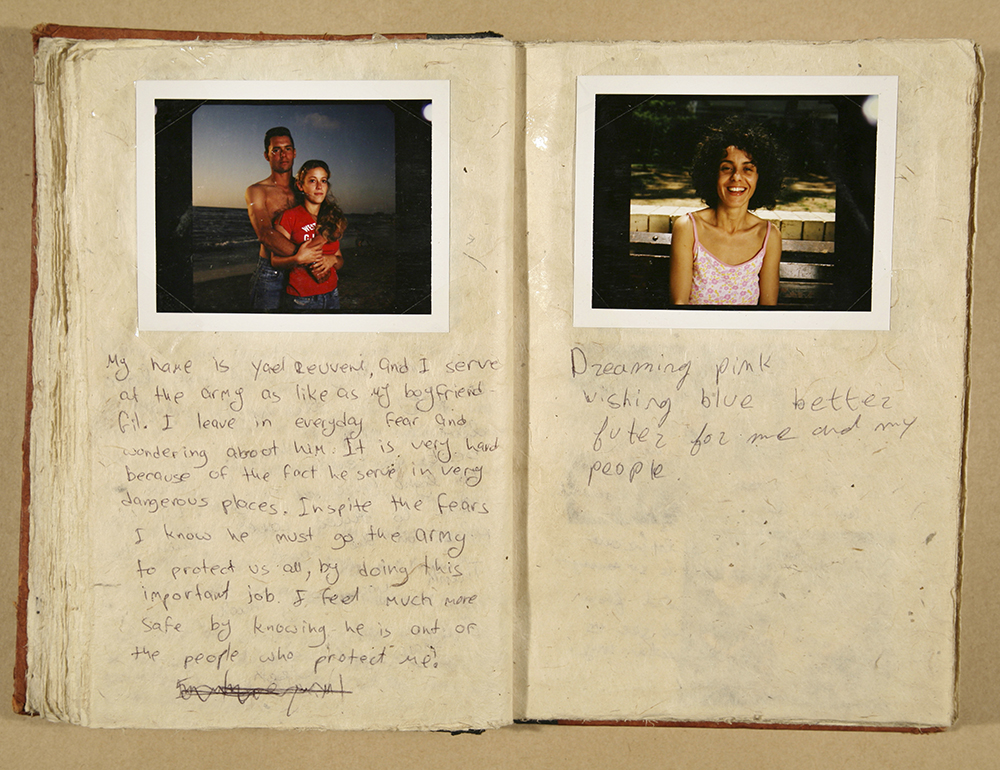 My name is Yael Reuveni, and I serve
at the army as like as my boyfriend -
Gil. I leave in everyday fear and
wondering aboout him. It is very hard
because of the fact he serve in very
dangerous places. Inspite the fears
I know he must go the army
to protect us all, by doing this
important job. I feel much more
safe by knowing he is ont of
the people who protect me!
Dreaming pink
wishing blue better
futer for me and my
people.